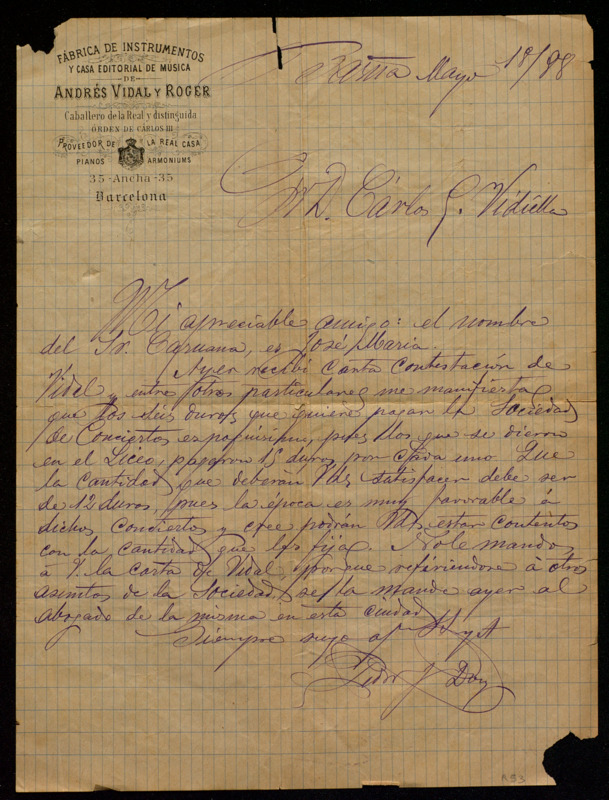 FÁBRICA DE INSTRUMENTOS
Y CASA EDITORIAL DE MÚSICA
DE
ANDRÉS VIDAL Y ROGER
Caballero de la Real y distinguida
ÓRDEN DE CÁRLOS III
PROVEEDOR DE LA REAL CASA
PIANOS ARMONIUMS
35-Ancha-35
Barcelona
Mayo 18/98
Sr. D. Cárlos G. Vidiella
Mi apreciable amigo: el nombre
del Sr. Caruana, es José Maria.
Ayer recibí carta contestación de
Vidal y entre otros particulares me manifiesta
que los seis duros que quiere pagar la Sociedad
de Conciertos es poquísimo, pues los que se dieron
en el Liceo, pagaron 15 duros por cada uno. Que
la cantidad que deberán Vds. satisfacer debe ser
de 12 duros, pues la época es muy favorable á
dichos Conciertos y cree podrán Vds. estar contentos
con la cantidad que les fija. No le mando
á V. la carta de Vidal, porque refiriendose á otros
asuntos de la Sociedad, se la mandé ayer al
abogado de la misma en esta ciudad
Siempre suyo af